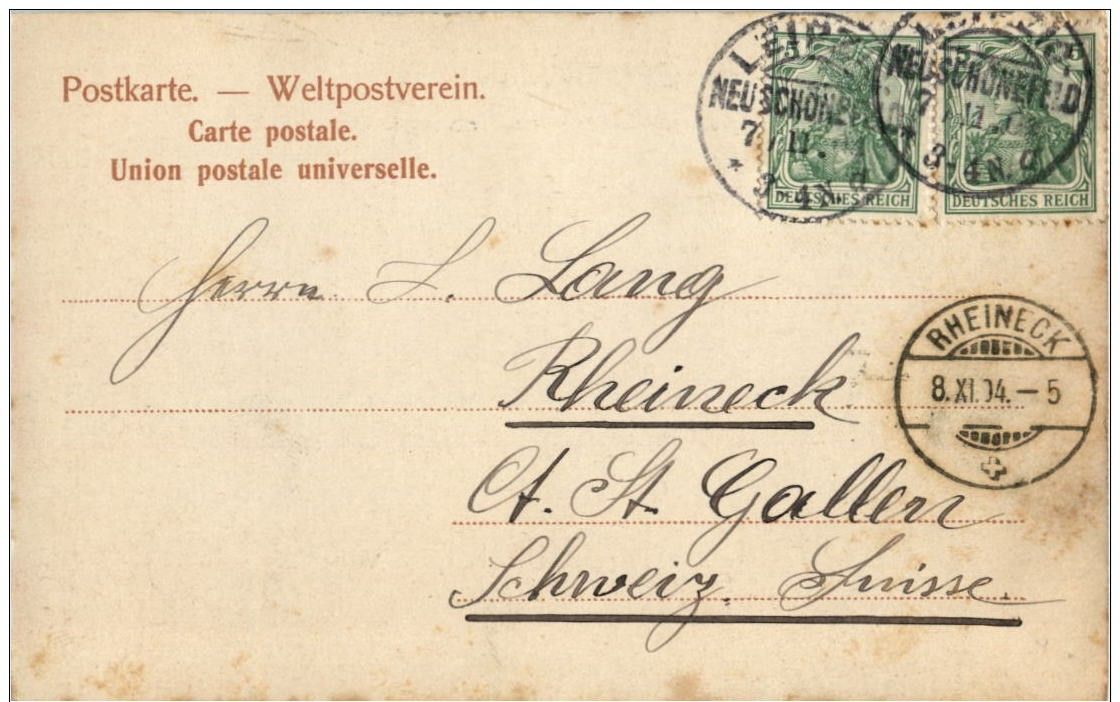 Postkarte. — Weltpostverein.
Carte postale.
Union postale universelle.
LEIPZ
NEUSCHÖNEF
7 / 11.
* 3-4N. d
5
DEUTSCHES REICH
LEIPZIG
NEUSCHÖNEFELD
7 / 11.
* 3-4N. d
5
DEUTSCHES REICH
Herrn L. Lang
Rheineck
Ct. St. Gallen
Schweiz. Suisse.
RHEINECK
8. XI. 04. – 5